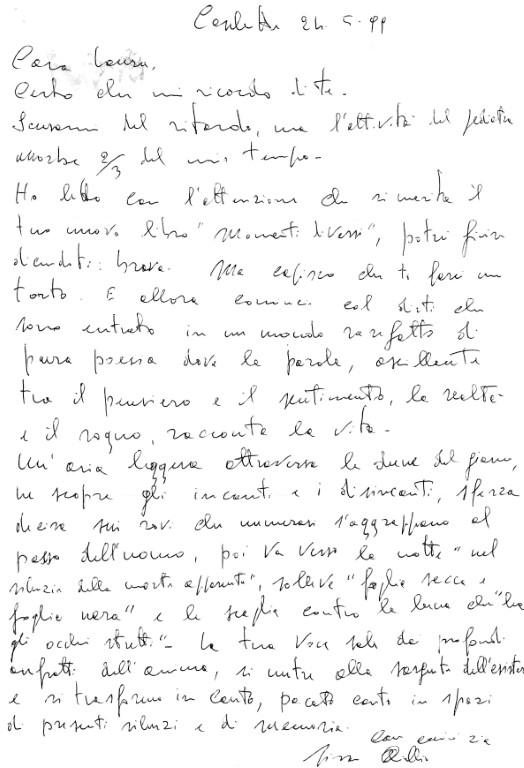 24. 5. 99
Cara Laura,
Certo che mi ricordo di te.
Scusami del ritardo, ma l'attività del pediatra
assorbe 2/3 del mio tempo.
Ho letto con l'attenzione che si merita il
tuo nuovo libro "Momenti diversi", potrei finir
dicendoti: brava. Ma capisco che ti farei un
torto. E allora comincio col dirti che
sono entrato in un mondo rarefatto di
pura poesia dove la parola, oscillante
tra il pensiero e il sentimento, la realtà
e il sogno, racconta la vita.
Un'aria leggera attraversa le dune del giorno,
ne scopre gli incanti e i disincanti, sferza
decisa sui rovi che numerosi s'aggrappano al
passo dell'uomo, poi va verso la notte "nel
silenzio della morte apparente", solleva "foglie secche e
foglie nere" e le scaglia contro la luna che "ha
gli occhi stretti". La tua voce sale dai profondi
anfratti dell'anima, si nutre alla sorgente dell'esistere
e si trasforma in canto, pacato canto in spazi
di presenti silenzi e di memoria.
con amicizia